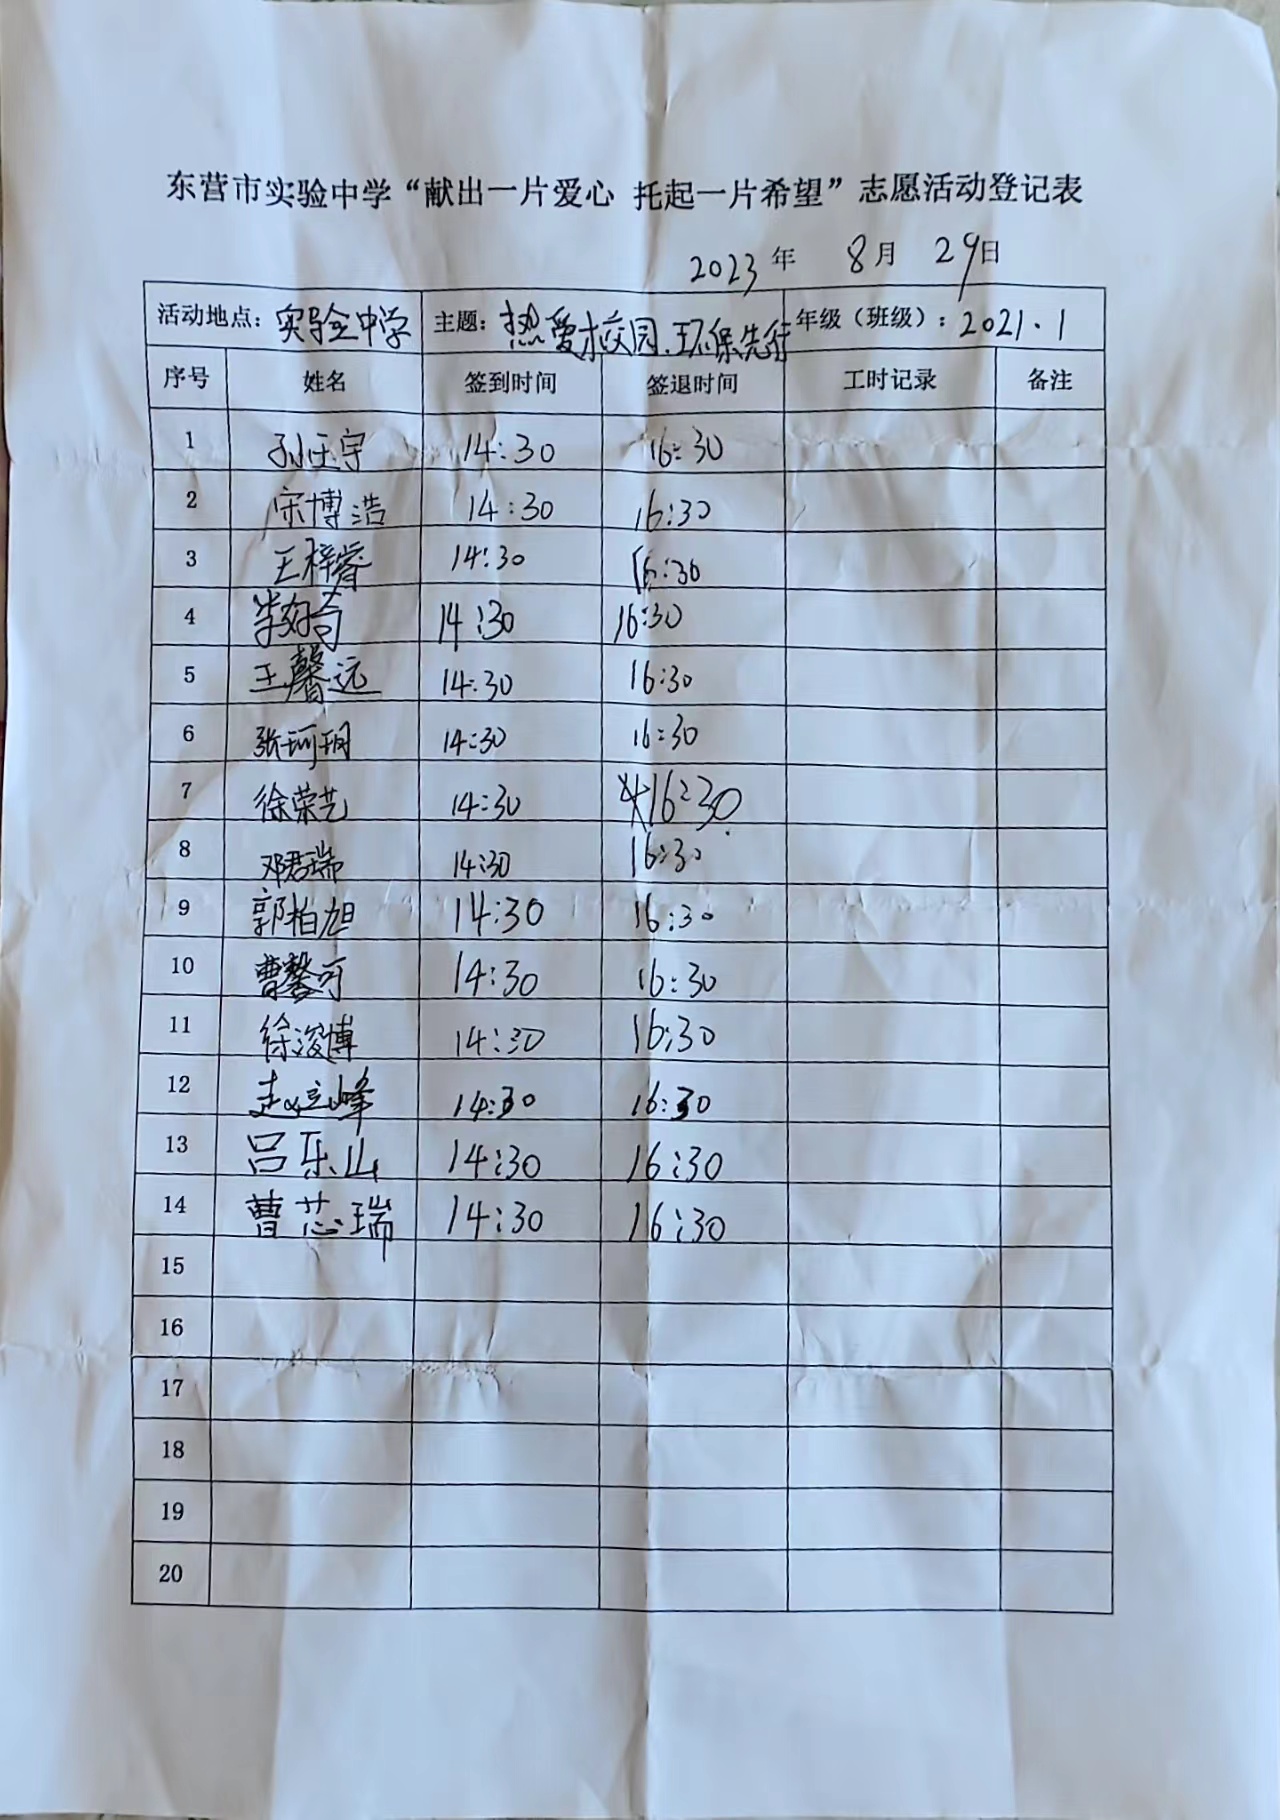 东营市实验中学“献出一片爱心 托起一片希望”志愿活动登记表
2023年 8月 29日
活动地点：实验中学 主题：热爱校园.环保先行 年级（班级）：2021.1
序号 姓名 签到时间 签退时间 工时记录 备注
1 孙玉宇 14:30 16:30
2 宋博浩 14:30 16:30
3 王梓睿 14:30 16:30
4 14:30 16:30
5 王馨远 14:30 16:30
6 张珂玥 14:30 16:30
7 徐荣艺 14:30 16:30
8 邓君瑞 14:30 16:30
9 郭柏旭 14:30 16:30
10 曹馨可 14:30 16:30
11 徐浚博 14:30 16:30
12 赵立峰 14:30 16:30
13 吕乐山 14:30 16:30
14 曹芯瑞 14:30 16:30
15
16
17
18
19
20